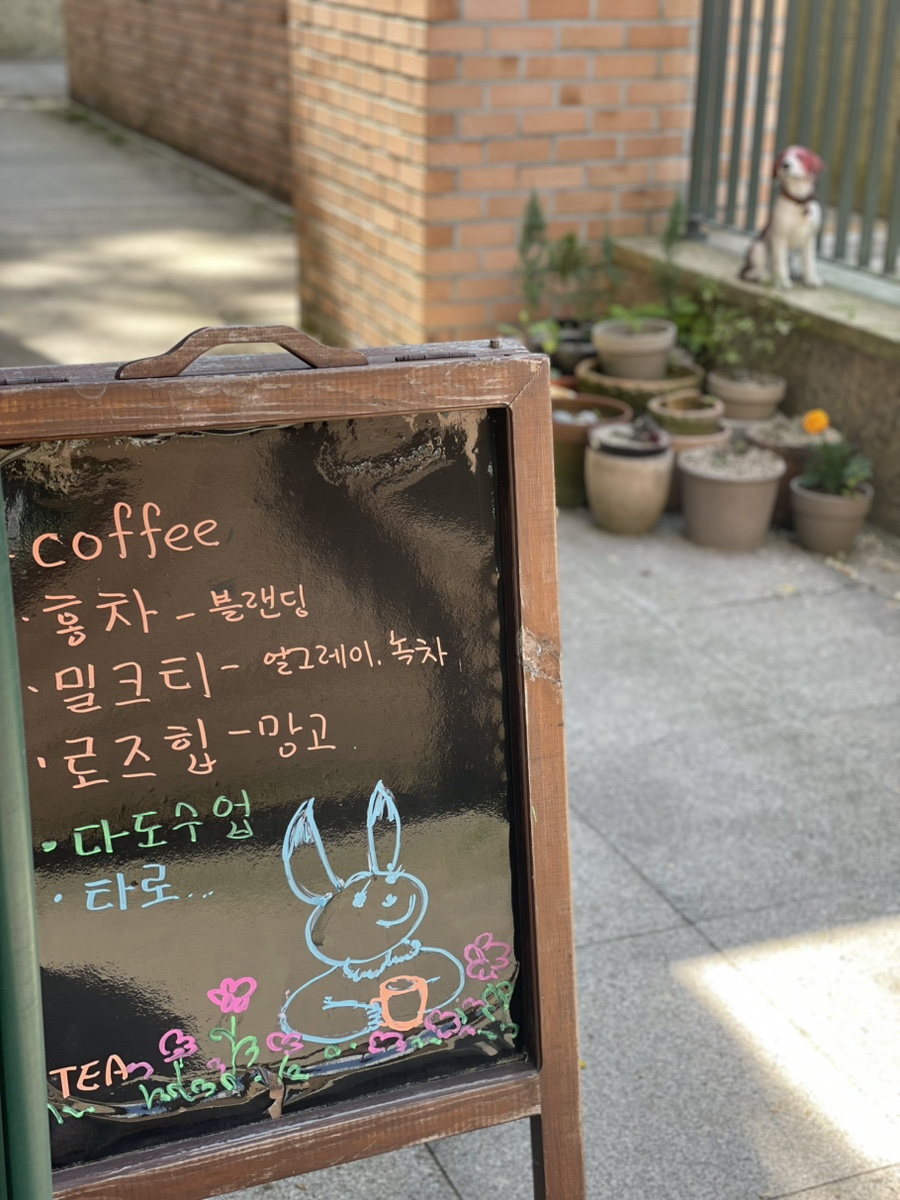 coffee
· 홍차 - 블랜딩
· 밀크티 - 얼그레이. 녹차
· 로즈힙 - 망고
· 다도수업
· 타로...
TEA